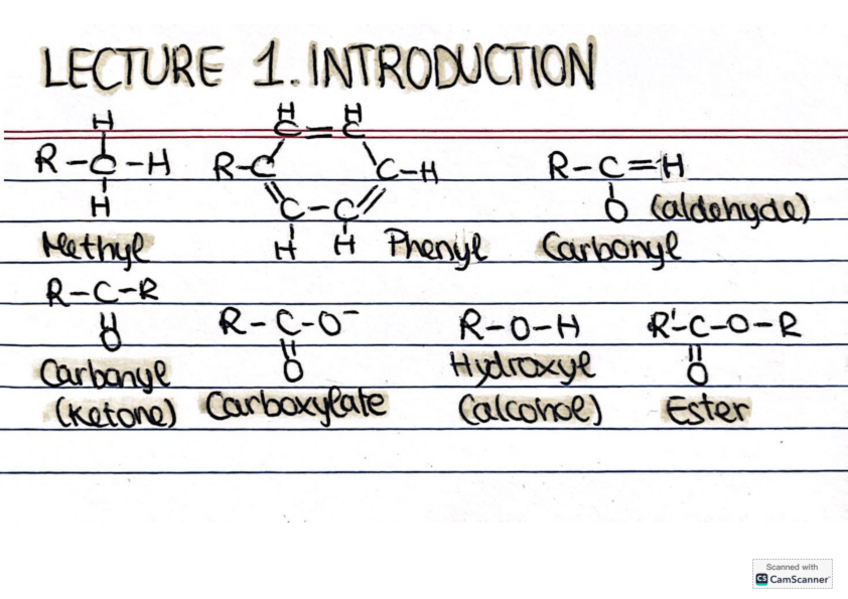 LECTURE 1. INTRODUCTION
H H H
C=C
R-C-H R-C C-H R-C=H
H C-C O (aldehyde)
Methyl H H Phenyl Carbonyl
R-C-R
O R-C-O⁻ R-O-H R'-C-O-R
Carbonyl O Hydroxyl O
(Ketone) Carboxylate (alcohol) Ester
Scanned with
CS CamScanner